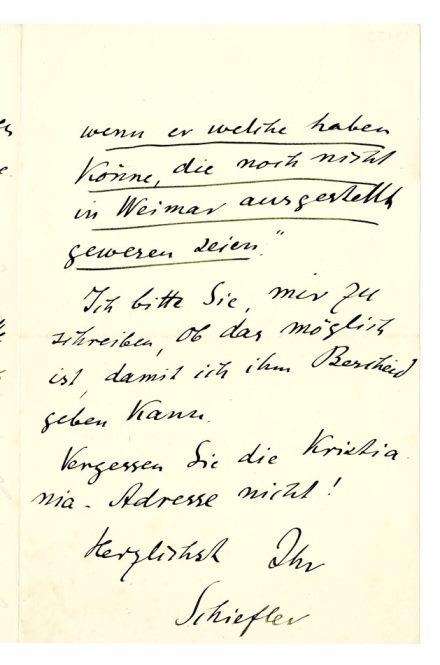 wenn er welche haben
könne, die noch nicht
in Weimar ausgestellt
gewesen seien."
Ich bitte Sie, mir zu
schreiben, ob das möglich
ist, damit ich ihm Bescheid
geben kann.
Vergessen Sie die Kristia
nia-Adresse nicht!
Herzlichst Ihr
Schiefler